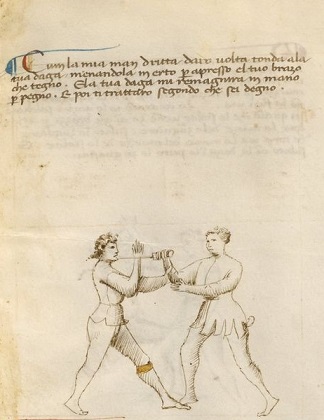 Cum la mia man dritta daro volta tonda ala
tua daga menandola in erto p apresso el tuo brazo
che tegno. E la tua daga mi remagnira in mano
p pegno. E poi ti trattero segondo che sei degno.